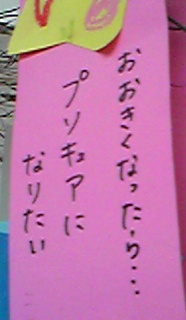 おおきくなったら・・・
プリキュアに
なりたい